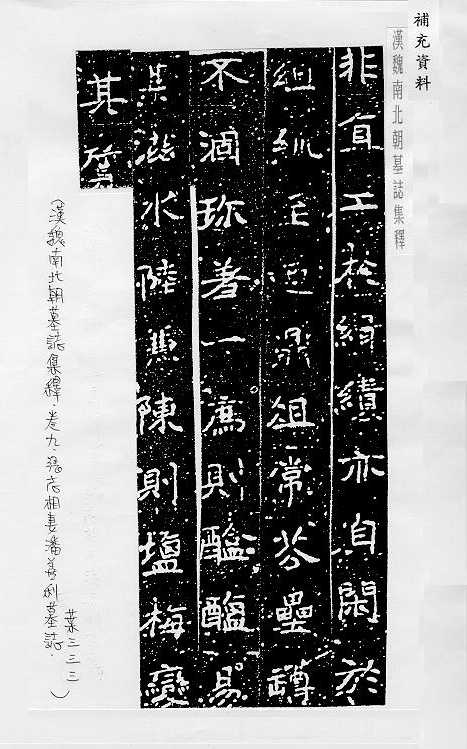 補充資料
漢魏南北朝墓誌集釋
非直工於緝績亦自閑於
組紃至迺鼎俎常芬罍
不涸珎者一薦則醯醢易
其滋水陸兼陳則塩梅變
其
(漢魏南北朝墓誌集釋．卷九．張志相妻潘善利墓誌．
葉三三三)